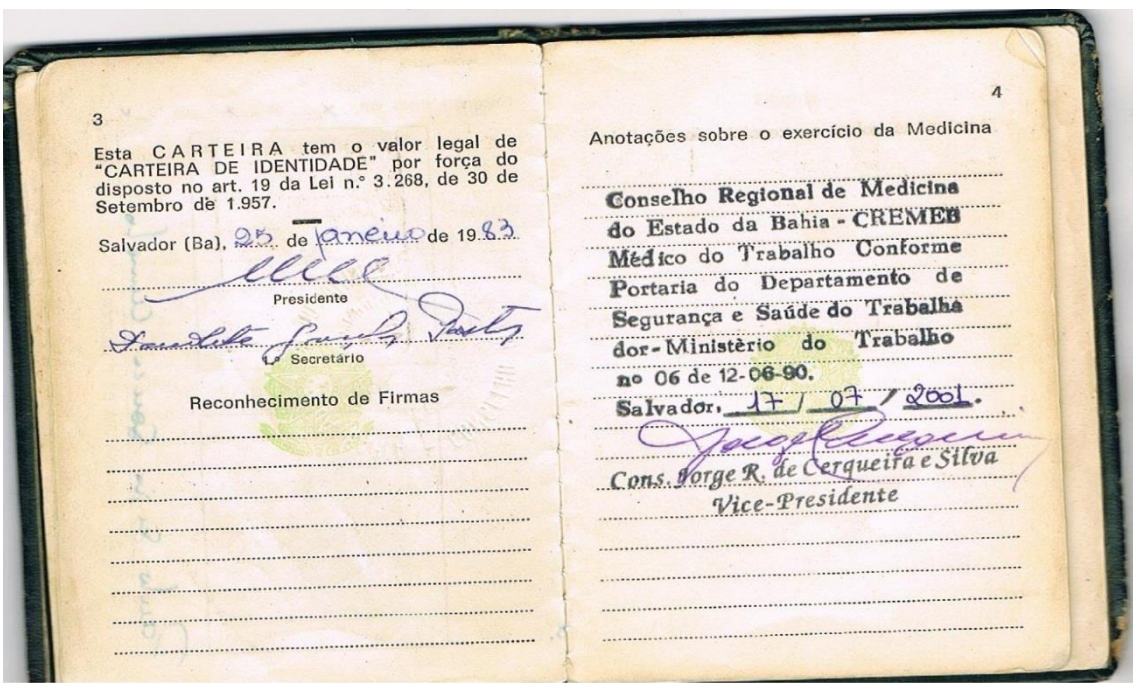 3
Esta CARTEIRA tem o valor legal de
"CARTEIRA DE IDENTIDADE" por força do
disposto no art. 19 da Lei n.° 3.268, de 30 de
Setembro de 1.957.
Salvador (Ba), 25 de janeiro de 1983
Presidente
1.º Secretário
Reconhecimento de Firmas
4
Anotações sobre o exercício da Medicina
Conselho Regional de Medicina
do Estado da Bahia - CREMEB
Médico do Trabalho Conforme
Portaria do Departamento de
Segurança e Saúde do Trabalha
dor - Ministèrio do Trabalho
nº 06 de 12-06-90.
Salvador, 17 / 07 / 2001.
Cons. Jorge R. de Cerqueira e Silva
Vice-Presidente